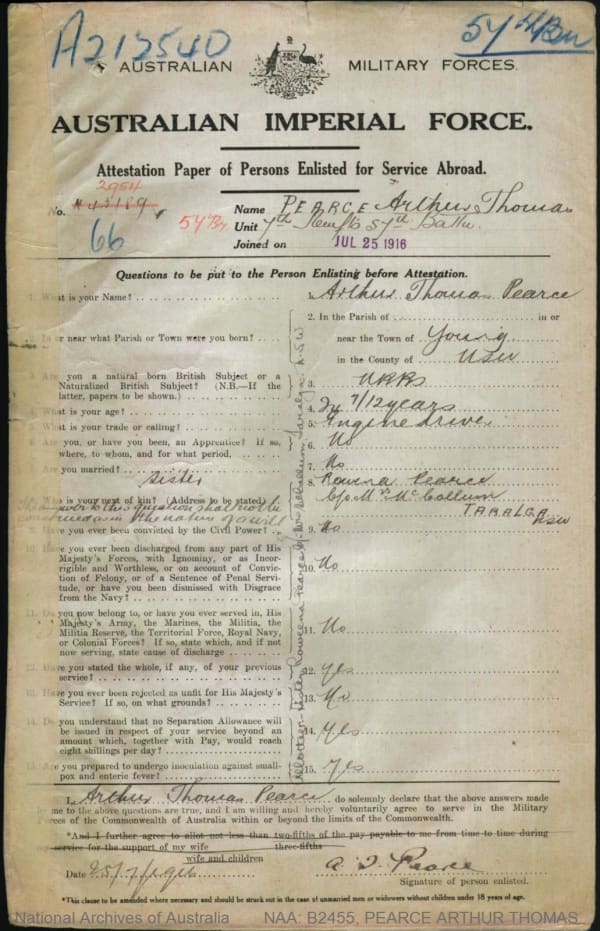 A212540
54th Bn
AUSTRALIAN MILITARY FORCES.
AUSTRALIAN IMPERIAL FORCE.
Attestation Paper of Persons Enlisted for Service Abroad.
2954
No.
66
54 Bn
Name PEARCE Arthur Thomas
Unit 7th Reinfts 54th Battn.
Joined on JUL 25 1916
Questions to be put to the Person Enlisting before Attestation.
1. What is your Name? 1. Arthur Thomas Pearce
2. In the Parish of in or
2. In or near what Parish or Town were you born? near the Town of Young
in the County of NSW
3. Are you a natural born British Subject or a
Naturalized British Subject? (N.B.—If the 3.
latter, papers to be shown.)
4. What is your age? 4. 7/12 years
5. What is your trade or calling? 5. Engine driver
6. Are you, or have you been, an Apprentice? If so, 6. No
where, to whom, and for what period.
7. Are you married? 7. No
sister
8. Who is your next of kin? (Address to be stated) 8. Rowena Pearce
C/o Mrs McCallum
TARALGA NSW
The answer to this question shall not be
construed as in the nature of a will
9. Have you ever been convicted by the Civil Power? 9. No
10. Have you ever been discharged from any part of His
Majesty's Forces, with Ignominy, or as Incor-
rigible and Worthless, or on account of Convic- 10. No
tion of Felony, or of a Sentence of Penal Servi-
tude, or have you been dismissed with Disgrace
from the Navy?
11. Do you now belong to, or have you ever served in, His
Majesty's Army, the Marines, the Militia, the
Militia Reserve, the Territorial Force, Royal Navy, 11. No
or Colonial Forces? If so, state which, and if not
now serving, state cause of discharge
12. Have you stated the whole, if any, of your previous
service? 12. Yes
13. Have you ever been rejected as unfit for His Majesty's
Service? If so, on what grounds? 13. No
14. Do you understand that no Separation Allowance will
be issued in respect of your service beyond an
amount which, together with Pay, would reach 14. Yes
eight shillings per day?
15. Are you prepared to undergo inoculation against small-
pox and enteric fever? 15. Yes
Allotteen—Sister Rowena Pearce C/o Mrs McCallum Taralga N.S.W.
I, Arthur Thomas Pearce do solemnly declare that the above answers made
by me to the above questions are true, and I am willing and hereby voluntarily agree to serve in the Military
Forces of the Commonwealth of Australia within or beyond the limits of the Commonwealth.
*And I further agree to allot not less than two-fifths of the pay payable to me from time to time during
service for the support of my wife three-fifths
wife and children
Date 25/7/1916 A. T. Pearce
Signature of person enlisted.
*This clause to be amended where necessary and should be struck out in the case of unmarried men or widowers without children under 18 years of age.
National Archives of Australia NAA: B2455, PEARCE ARTHUR THOMAS